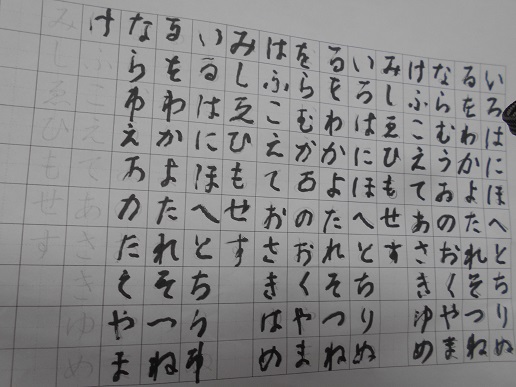 いろはにほへとちりぬ
るをわかよたれそつね
ならむうおのおくやま
けふこえてあさきゆめ
みしゑひもせす
いろはにほへとちりぬ
るをわかよたれそつね
をらむかのおくやま
はふこえておさきはめ
みしゑひもせす
いるはにほへとちら
るをわかよたれそつね
なられえあカたくやま
け